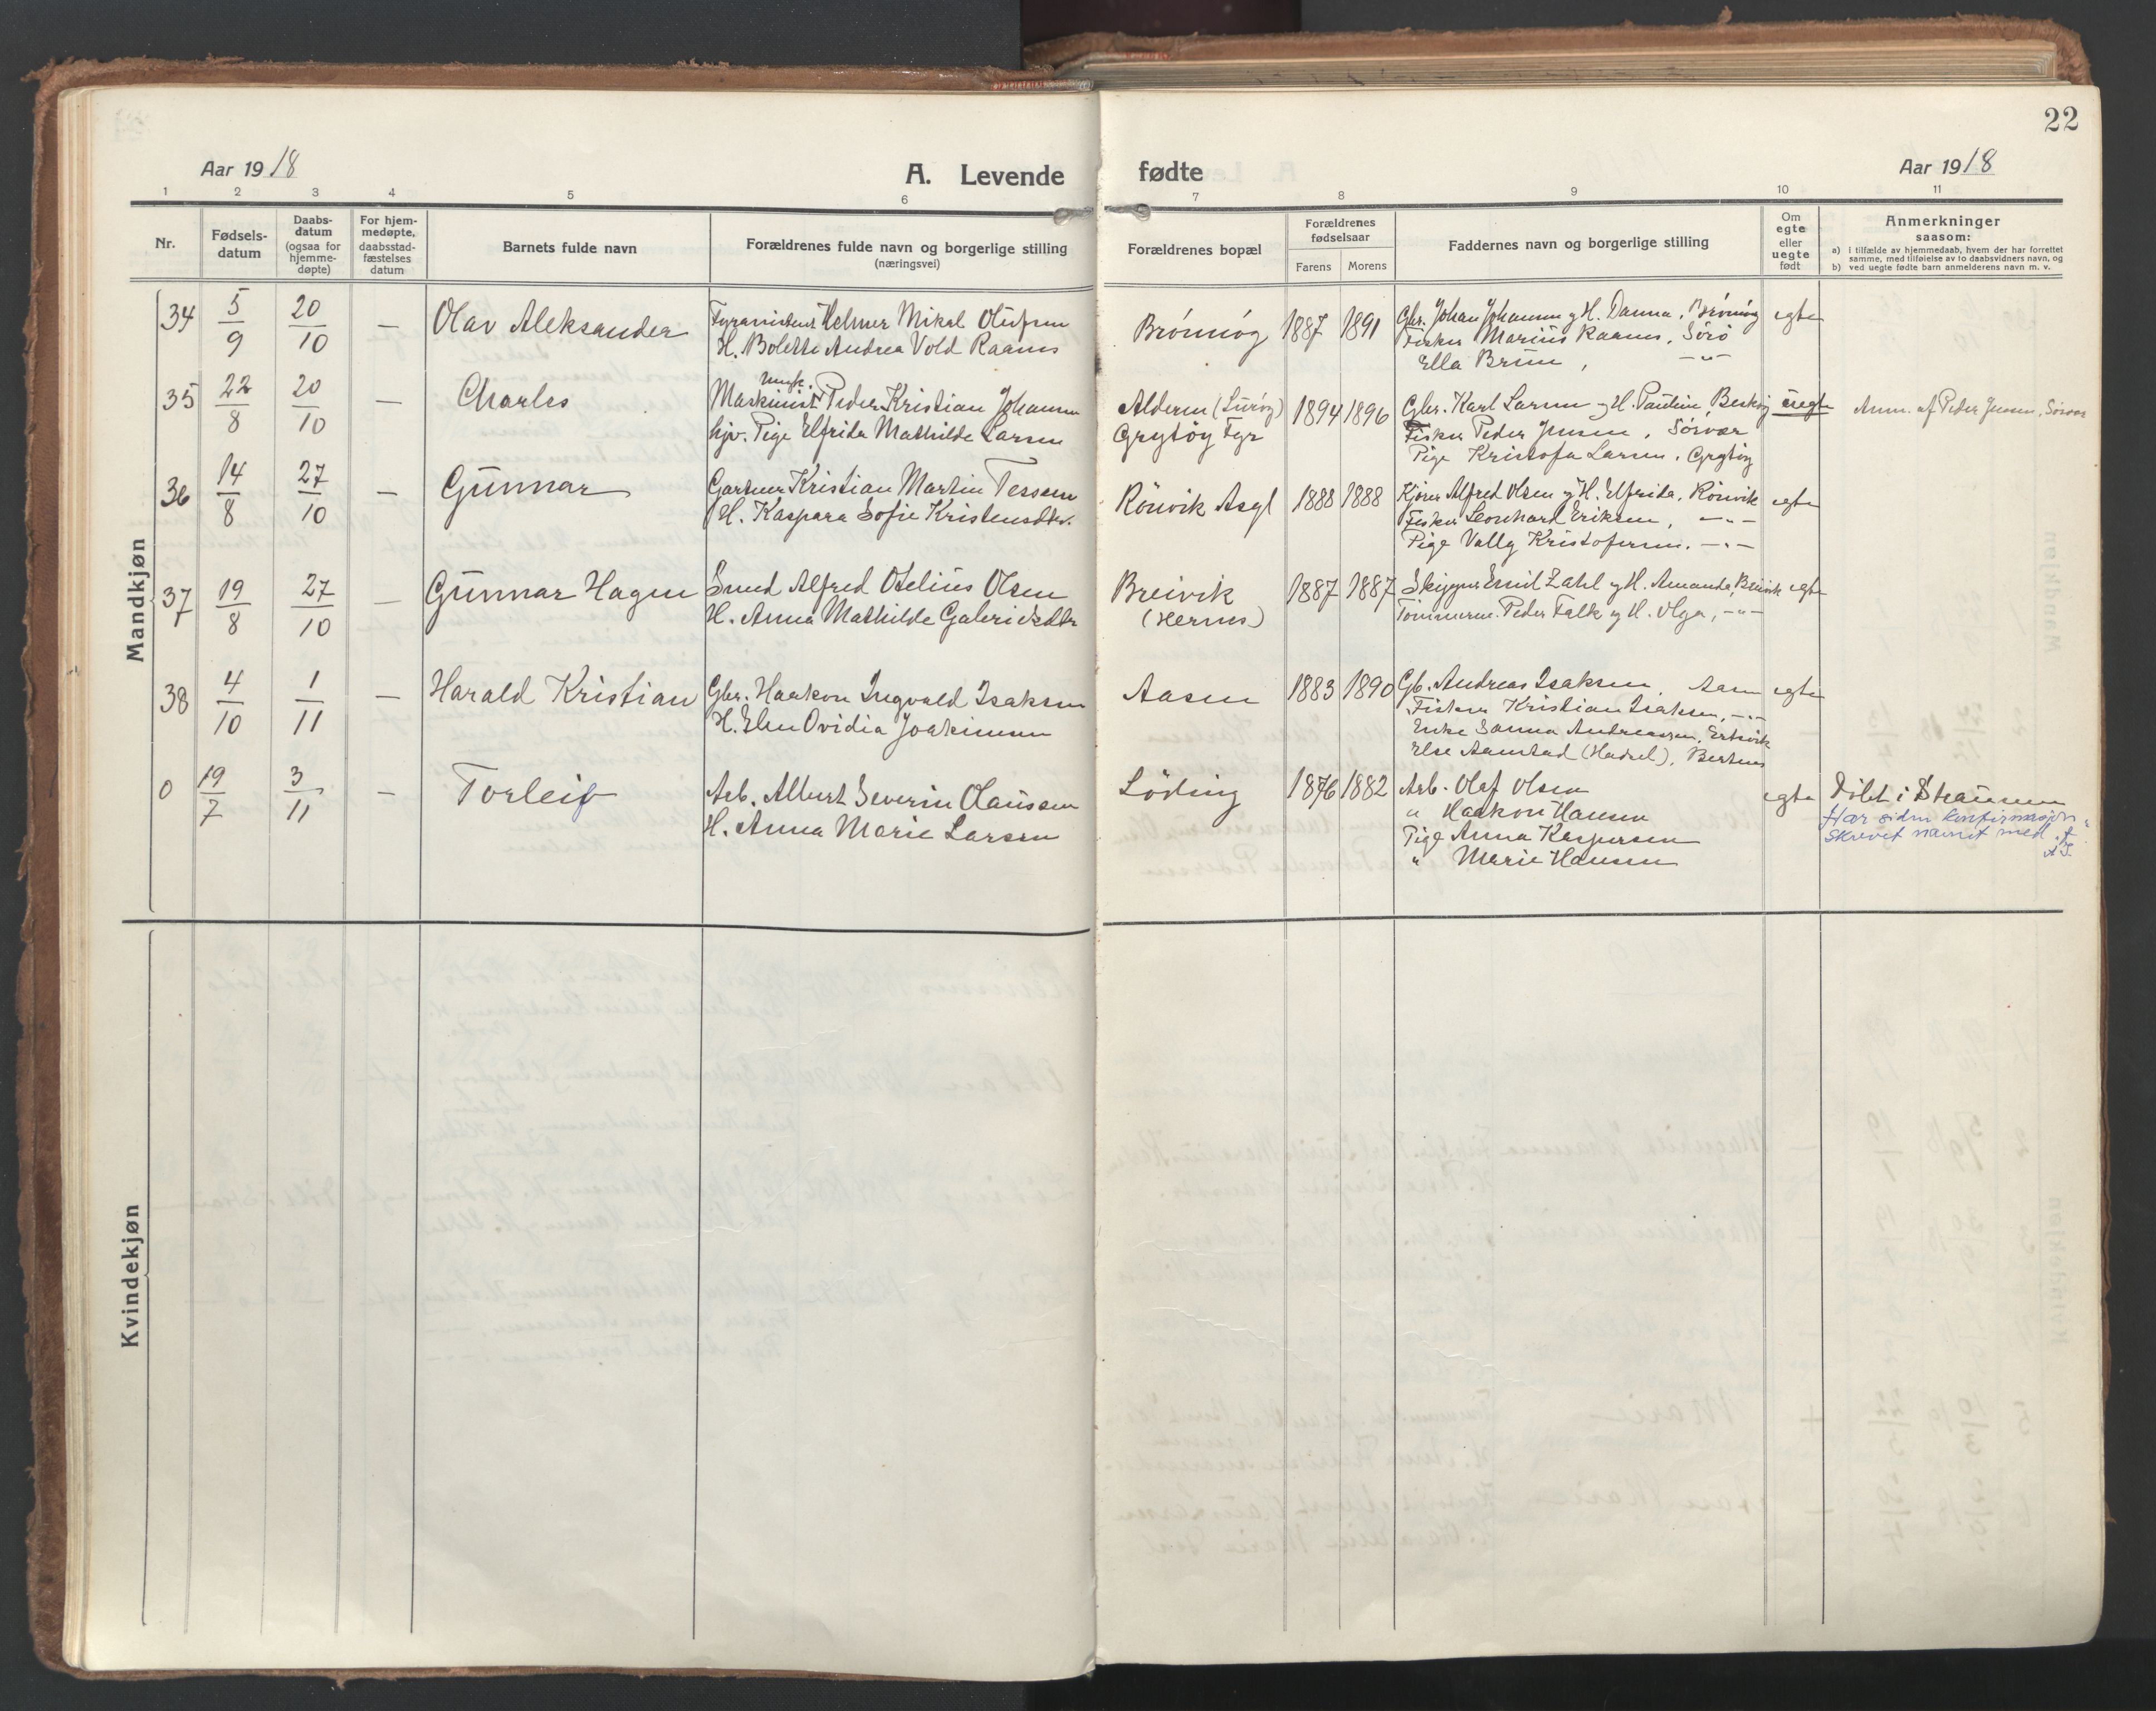 22
Aar 1918
A. Levende
fødte
Aar 1918
1 2 3 4 5 6 7 8 9 10 11
Nr.
Fødsels-
datum
Daabs-
datum
(ogsaa for
hjemme-
døpte)
For hjem-
medøpte,
daabsstad-
fæstelses
datum
Barnets fulde navn
Forældrenes fulde navn og borgerlige stilling
(næringsvei)
Forældrenes bopæl
Forældrenes
fødselsaar
Farens Morens
Faddernes navn og borgerlige stilling
Om
egte
eller
uegte
født
Anmerkninger
saasom:
a) i tilfælde av hjemmedaab, hvem der har forrettet
samme, med tilføielse av to daabsvidners navn, og
b) ved uegte fødte barn anmelderens navn m. v.
Mandkjøn
34 5/9 20/10 — Olav Aleksander
Helmer Mikal
H. Bolette Andrea Vold Raanes
Brönnöy 1887 1891
Gbr. Johan Johansen og H. Danna, Brönnöy
Fisker Marius Raanes, Sörö
Ella Brun, —"—
egte
35 22/8 20/10 — Charles
Ungk.
Maskinist Peder Kristian Johansen
hjv. Pige Elfrida Mathilde Larsen
Alderen (Luröy)
Grytöy Fyr
1894 1896
Gbr. Karl Larsen og H. Pauline,
Fisker Peder Jensen, Sörvær
Pige Kristofa Larsen, Grytöy
uegte
Anm. af Peder Jensen, Sörvær
36 14/8 27/10 — Gunnar
Gartner Kristian Martin Tessem
H. Kaspara Sofie Kristensdtr.
Rönvik Asyl 1888 1888
Kjörer Alfred Olsen og H. Elfrida, Rönvik
Fisker Leonhard Eriksen, —"—
Pige Vally Kristofersen. —"—
egte
37 19/8 27/10 — Gunnar Hagen
Smed Alfred Otelius Olsen
H. Anna Mathilde
Breivik
(Hernes)
1887 1887
Skipper Emil Zahl og H. Amanda, Breivik
Tömmerm. Peder Falk og H. Olga, —"—
egte
38 4/10 1/11 — Harald Kristian
Gbr. Haakon Ingvald Isaksen
H. Elen Ovidia Joakimsen
Aasen 1883 1890
Gb. Andreas Isaksen, Aasen
Fisker Kristian Isaksen, —"—
Enke Sanna Andreassen,
Else (Hadsel),
egte
0 19/7 3/11 — Torleif
Arb. Albert Severin Olaussen
H. Anna Marie Larsen
Löding 1876 1882
Arb. Olaf Olsen
" Haakon Hansen
Pige Anna Kaspersen
" Marie Hansen
egte
Döbt i Straumen
Har siden konfirmasjon
skrevet navnet med "f".
Kvindekjøn